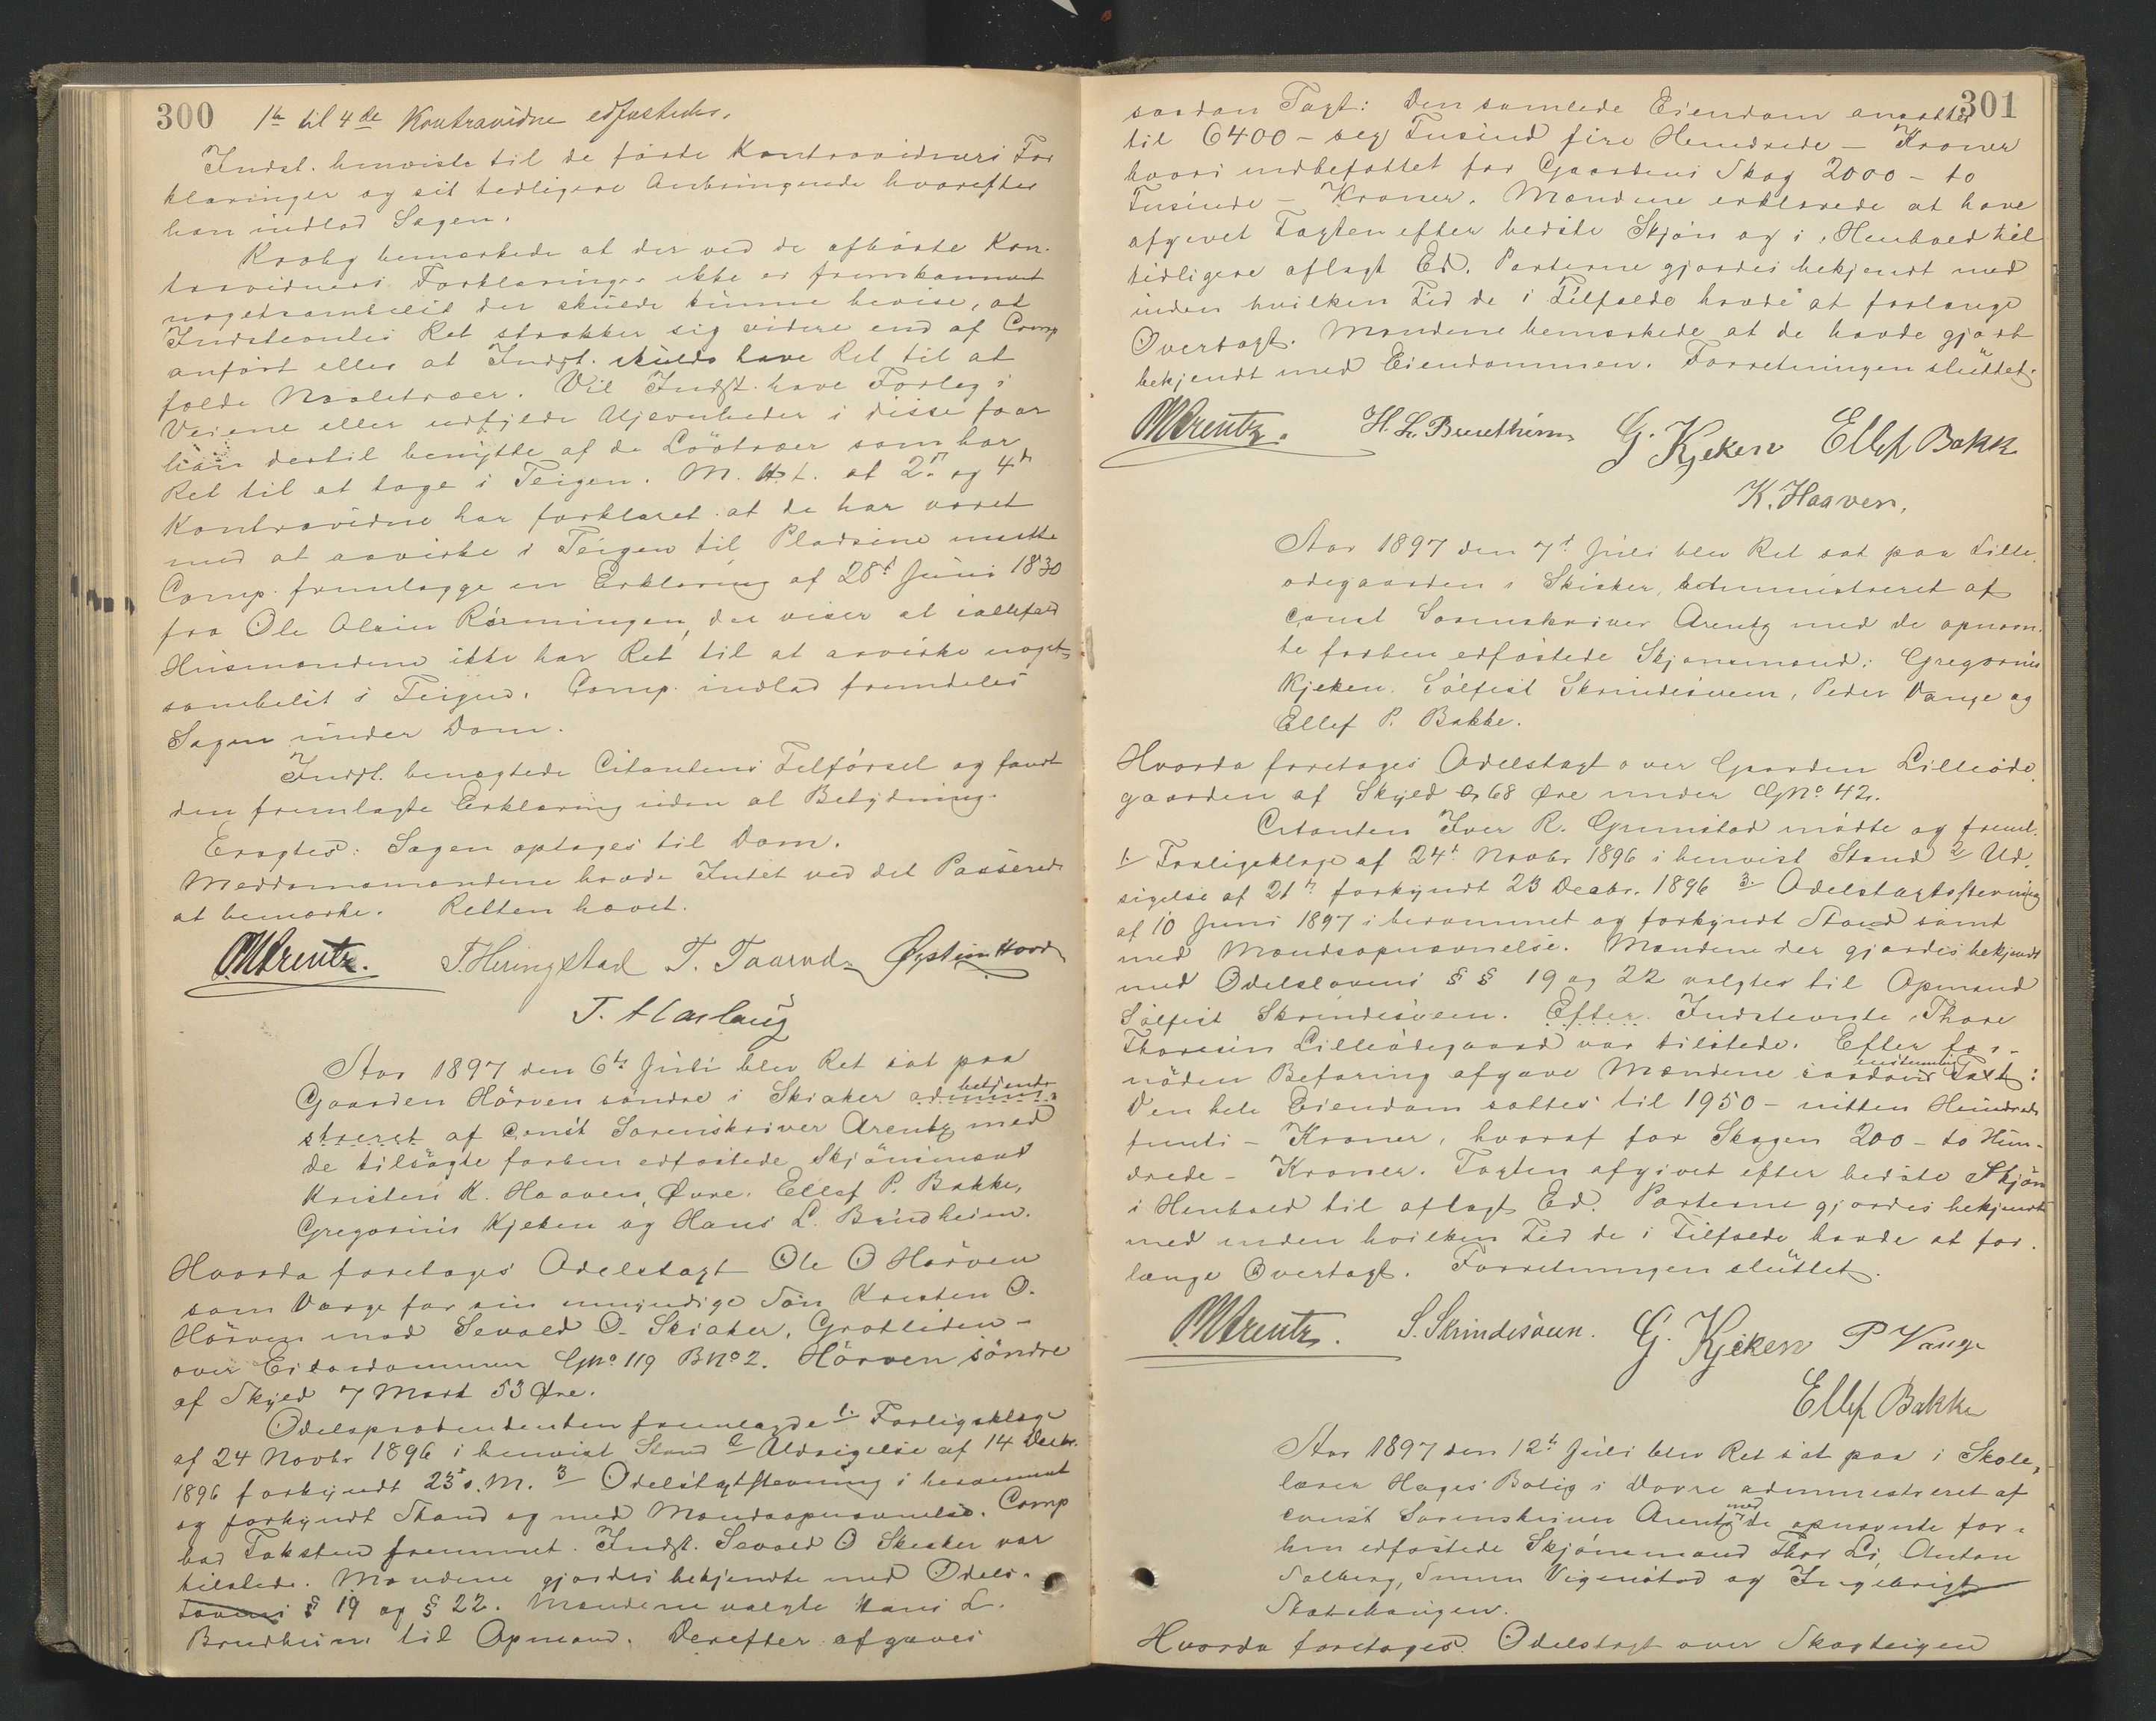 300
1ste til 4de Kontravidne edfæstedes.
Indst. henviste til de førte Kontravidners For
klaringer og sit tidligere Anbringende hvorefter
han indlod Sagen.
Kraby bemærkede at der ved de afhørte Kon-
travidners Forklaringer ikke er fremkommet
nogetsomhelst der skulde kunne bevise, at
Indstevntes Ret strækker sig videre end af Comp
anført eller at Indst. skulde have Ret til at
fælde Naaletræer. Vil Indst. have Forlæg i
Veiene eller udfylde Ujævnheder i disse faar
han dertil benytte af de Løvtræer som han har
Ret til at tage i Teigen. M. H. t. at 2det og 4de
Kontravidne har forklaret at de har været
med at avvirke i Teigen til Pladsene maatte
Comp. fremlægge en Erklæring af 28de Juni 1830
fra Ole Olsen Rørmingen, der viser at iallefald
Husmændene ikke har Ret til at avvirke noget-
somhelst i Teigen. Comp. indlod fremdeles
Sagen under Dom.
Indst. benægtede Citantens Tilførsel og fandt
den fremlagte Erklæring uden al Betydning.
Eragtes: Sagen optages til Dom.
Meddomsmændene havde Intet ved det Passerede
at bemærke. Retten hævet.
OMArentz. T. Heringstad T. Taarud Øystein Hovd
T. Harlaug
Aar 1897 den 6te Juli blev Ret sat paa
Gaarden Hørven søndre i Skiaker admini- betjent
streret af const Sorenskriver Arentz med
de tilsagte forhen edfæstede Skjønsmænd
Kristen K. Haaven Øvre, Ellef P. Bakke,
Gregorius Kjeken og Hans L. Brudheim.
Hvorda foretages Odelstaxt Ole O Hørven
som Værge for sin umyndige Søn Kristen O.
Hørven mod Sevald O. Skiaker, Grotliden –
over Eiendommen GNo 119 BNo 2. Hørven søndre
af Skyld 7 Mark 53 Øre.
Odelsprætendenten fremlagde 1. Forligsklage
af 24 Novbr 1896 i henvist Stand 2 Udsigelse af 14 Decbr.
1896 forkyndt 23 s. M. 3 Odelstaxtstevning i berammet
og forkyndt Stand og med Mandsopnævnelse. Comp
bad Taksten fremmet. Indst. Sevald O Skiaker var
tilstede. Mændene gjordes bekjendte med Odels-
lovens § 19 og § 22. Mændene valgte Hans L.
Brudheim til Opmand. Derefter afgaves
301
saadan Taxt: Den samlede Eiendom ansættes
til 6400 – sex Tusind fire Hundrede – Kroner
hvori indbefattet for Gaardens Skog 2000 – to
Tusinde – Kroner. Mændene erklærede at have
afgivet Taxten efter bedste Skjøn og i Henhold til
tidligere aflagt Ed. Parterne gjordes bekjendt med
inden hvilken Tid de i Tilfælde havde at forlange
Overtaxt. Mændene bemærkede at de havde gjort
bekjendt med Eiendommen. Forretningen sluttet.
OMArentz. H. L. Brudheim G. Kjeken Ellef Bakke
K. Haaven.
Aar 1897 den 7de Juli blev Ret sat paa Lille
ødegaarden i Skiaker, administreret af
const Sorenskriver Arentz med de opnævn-
te forhen edfæstede Skjønsmænd: Gregorius
Kjeken, Sølfest Skrindesveen, Peder Vange og
Ellef P. Bakke.
Hvorda foretages Odelstaxt over Gaarden Lilleøde-
gaarden af Skyld 0,68 Øre under GNo 42.
Citanten Iver R. Grimstad mødte og freml.
1. Forligsklage af 24de Novbr 1896 i henvist Stand 2 Ud-
sigelse af 21de forkyndt 23 Decbr. 1896 3. Odelstaxtstevning
af 10 Juni 1897 i berammet og forkyndt Stand samt
med Mandsopnævnelse. Mændene der gjordes bekjendt
med Odelslovens § § 19 og 22 valgtes til Opmand
Sølfest Skrindesveen. Efter. Indstevnte Thore
Thoresen Lilleødegaard var tilstede. Efter for-
nøden Befaring afgave Mændene saadan enstemmig Taxt:
Den hele Eiendom sattes til 1950 – nitten Hundrede
femti – Kroner, hvoraf for Skogen 200 – to Hun-
drede – Kroner. Taxten afgivet efter bedste Skjøn
i Henhold til aflagt Ed. Parterne gjordes bekjendt
med inden hvilken Tid de i Tilfælde havde at for-
lange Overtaxt. Forretningen sluttet.
OMArentz. S. Skrindesveen. G. Kjeken P Vange
Ellef Bakke
Aar 1897 den 12te Juli blev Ret sat paa i Skole-
lærer Hages Bolig i Dovre administreret af
const Sorenskriver Arentz med de opnævnte for-
hen edfæstede Skjønsmænd Thor Li, Anton
Solberg, Simen Vigenstad og Ingebrigt
Skatehaugen.
Hvorda foretages Odelstaxt over Skogteigen